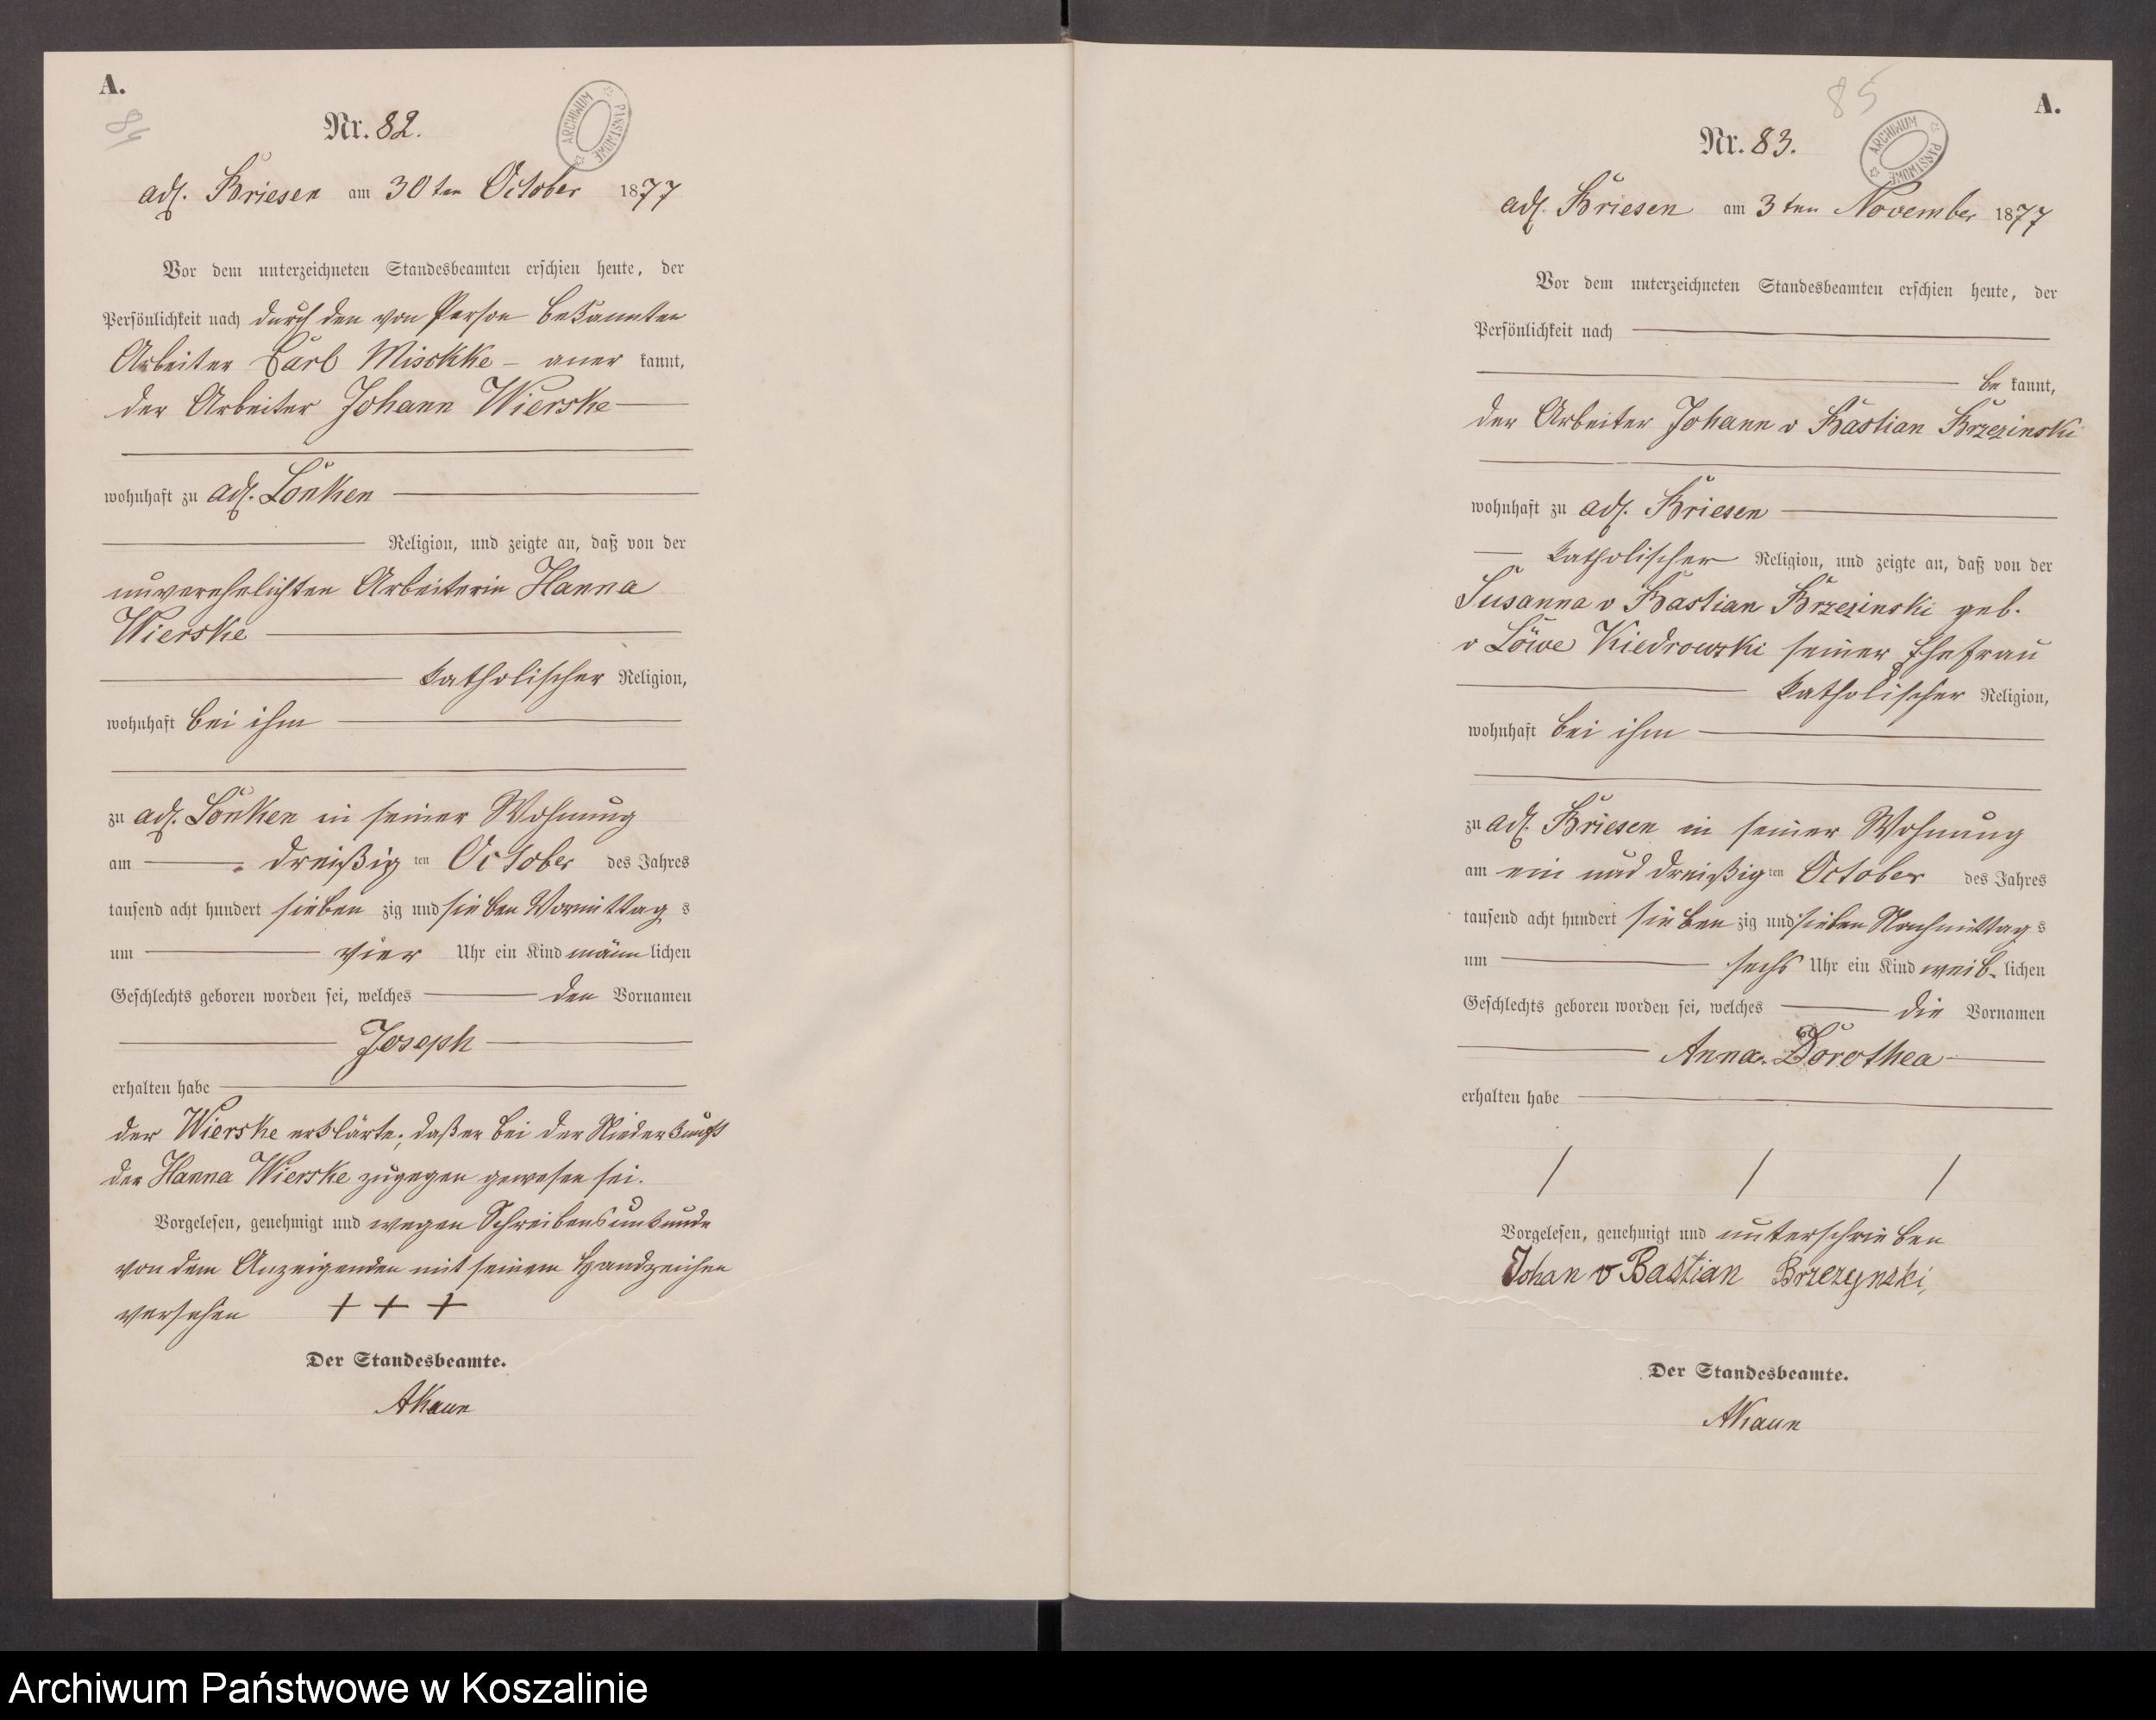 A.
84
Nr. 82.
ARCHIWUM PAŃSTWOWE
adl. Briesen am 30ten October 1877
Vor dem unterzeichneten Standesbeamten erschien heute, der
Persönlichkeit nach durch den von Person bekannten
Arbeiter Carl Mischke – aner kannt,
der Arbeiter Johann Wierske
wohnhaft zu adl. Lonken
Religion, und zeigte an, daß von der
unverehelichten Arbeiterin Hanna
Wierske
katholischer Religion,
wohnhaft bei ihm
zu adl. Lonken in seiner Wohnung
am dreißig ten October des Jahres
tausend acht hundert sieben zig und sieben Vormittag s
um vier Uhr ein Kind männ lichen
Geschlechts geboren worden sei, welches den Vornamen
Joseph
erhalten habe
der Wierske erklärte, daß er bei der Niederkunft
der Hanna Wierske zugegen gewesen sei.
Vorgelesen, genehmigt und wegen Schreibensunkunde
von dem Anzeigenden mit seinem Handzeichen
versehen + + +
Der Standesbeamte.
AKaun
85
A.
Nr. 83.
ARCHIWUM PAŃSTWOWE
adl. Briesen am 3ten November 1877
Vor dem unterzeichneten Standesbeamten erschien heute, der
Persönlichkeit nach
be kannt,
der Arbeiter Johann v Bastian Brzezinski
wohnhaft zu adl. Briesen
katholischer Religion, und zeigte an, daß von der
Susanna v Bastian Brzezinski geb.
v Löwe Kiedrowski seiner Ehefrau
katholischer Religion,
wohnhaft bei ihm
zu adl. Briesen in seiner Wohnung
am ein und dreißig ten October des Jahres
tausend acht hundert sieben zig und sieben Nachmittag s
um sechs Uhr ein Kind weib- lichen
Geschlechts geboren worden sei, welches die Vornamen
Anna Dorothea
erhalten habe
Vorgelesen, genehmigt und unterschrieben
Johan v Bastian Brzezynski,
Der Standesbeamte.
AKaun
Archiwum Państwowe w Koszalinie